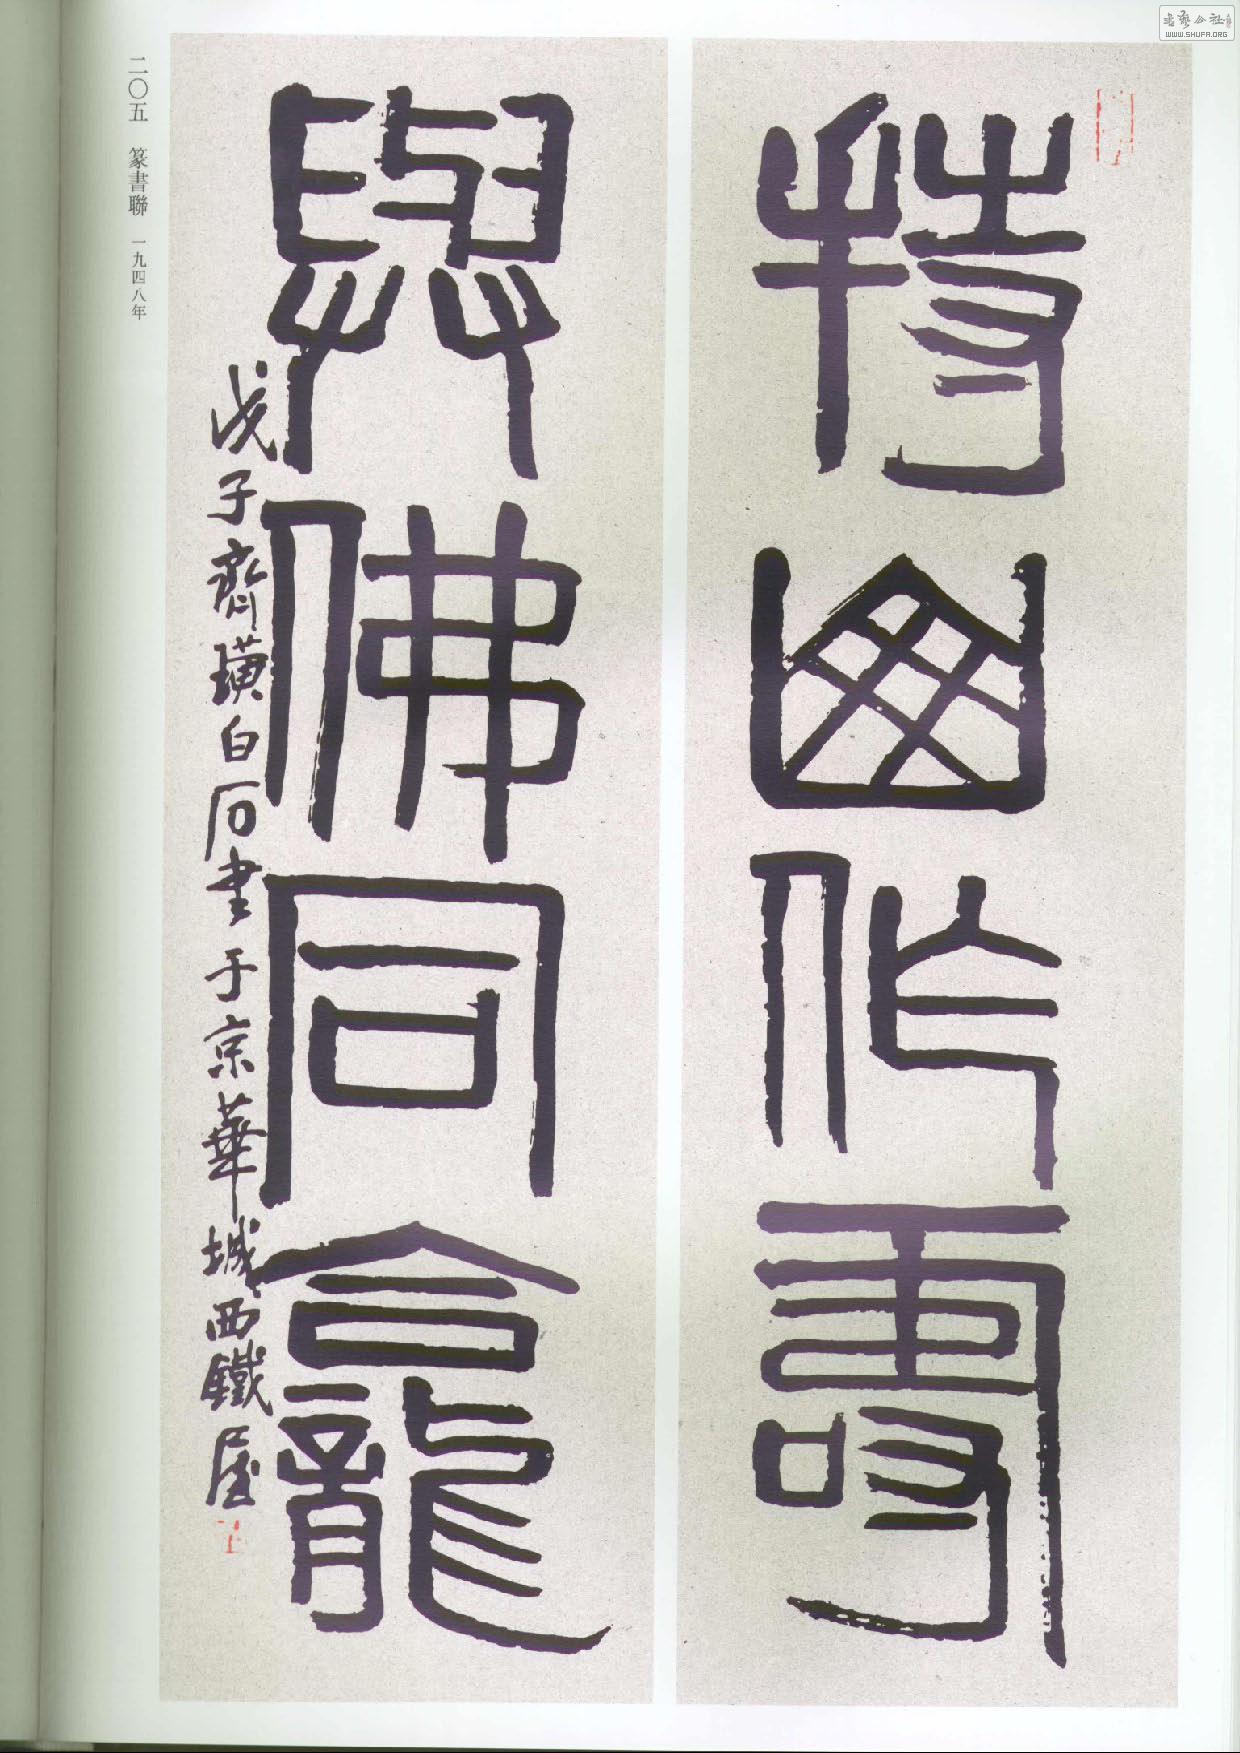 持山作壽
與佛同龕
戊子齊璜白石書于京華城西鐵屋
二〇五 篆書聯 一九四八年
书艺公社
WWW.SHUFA.ORG